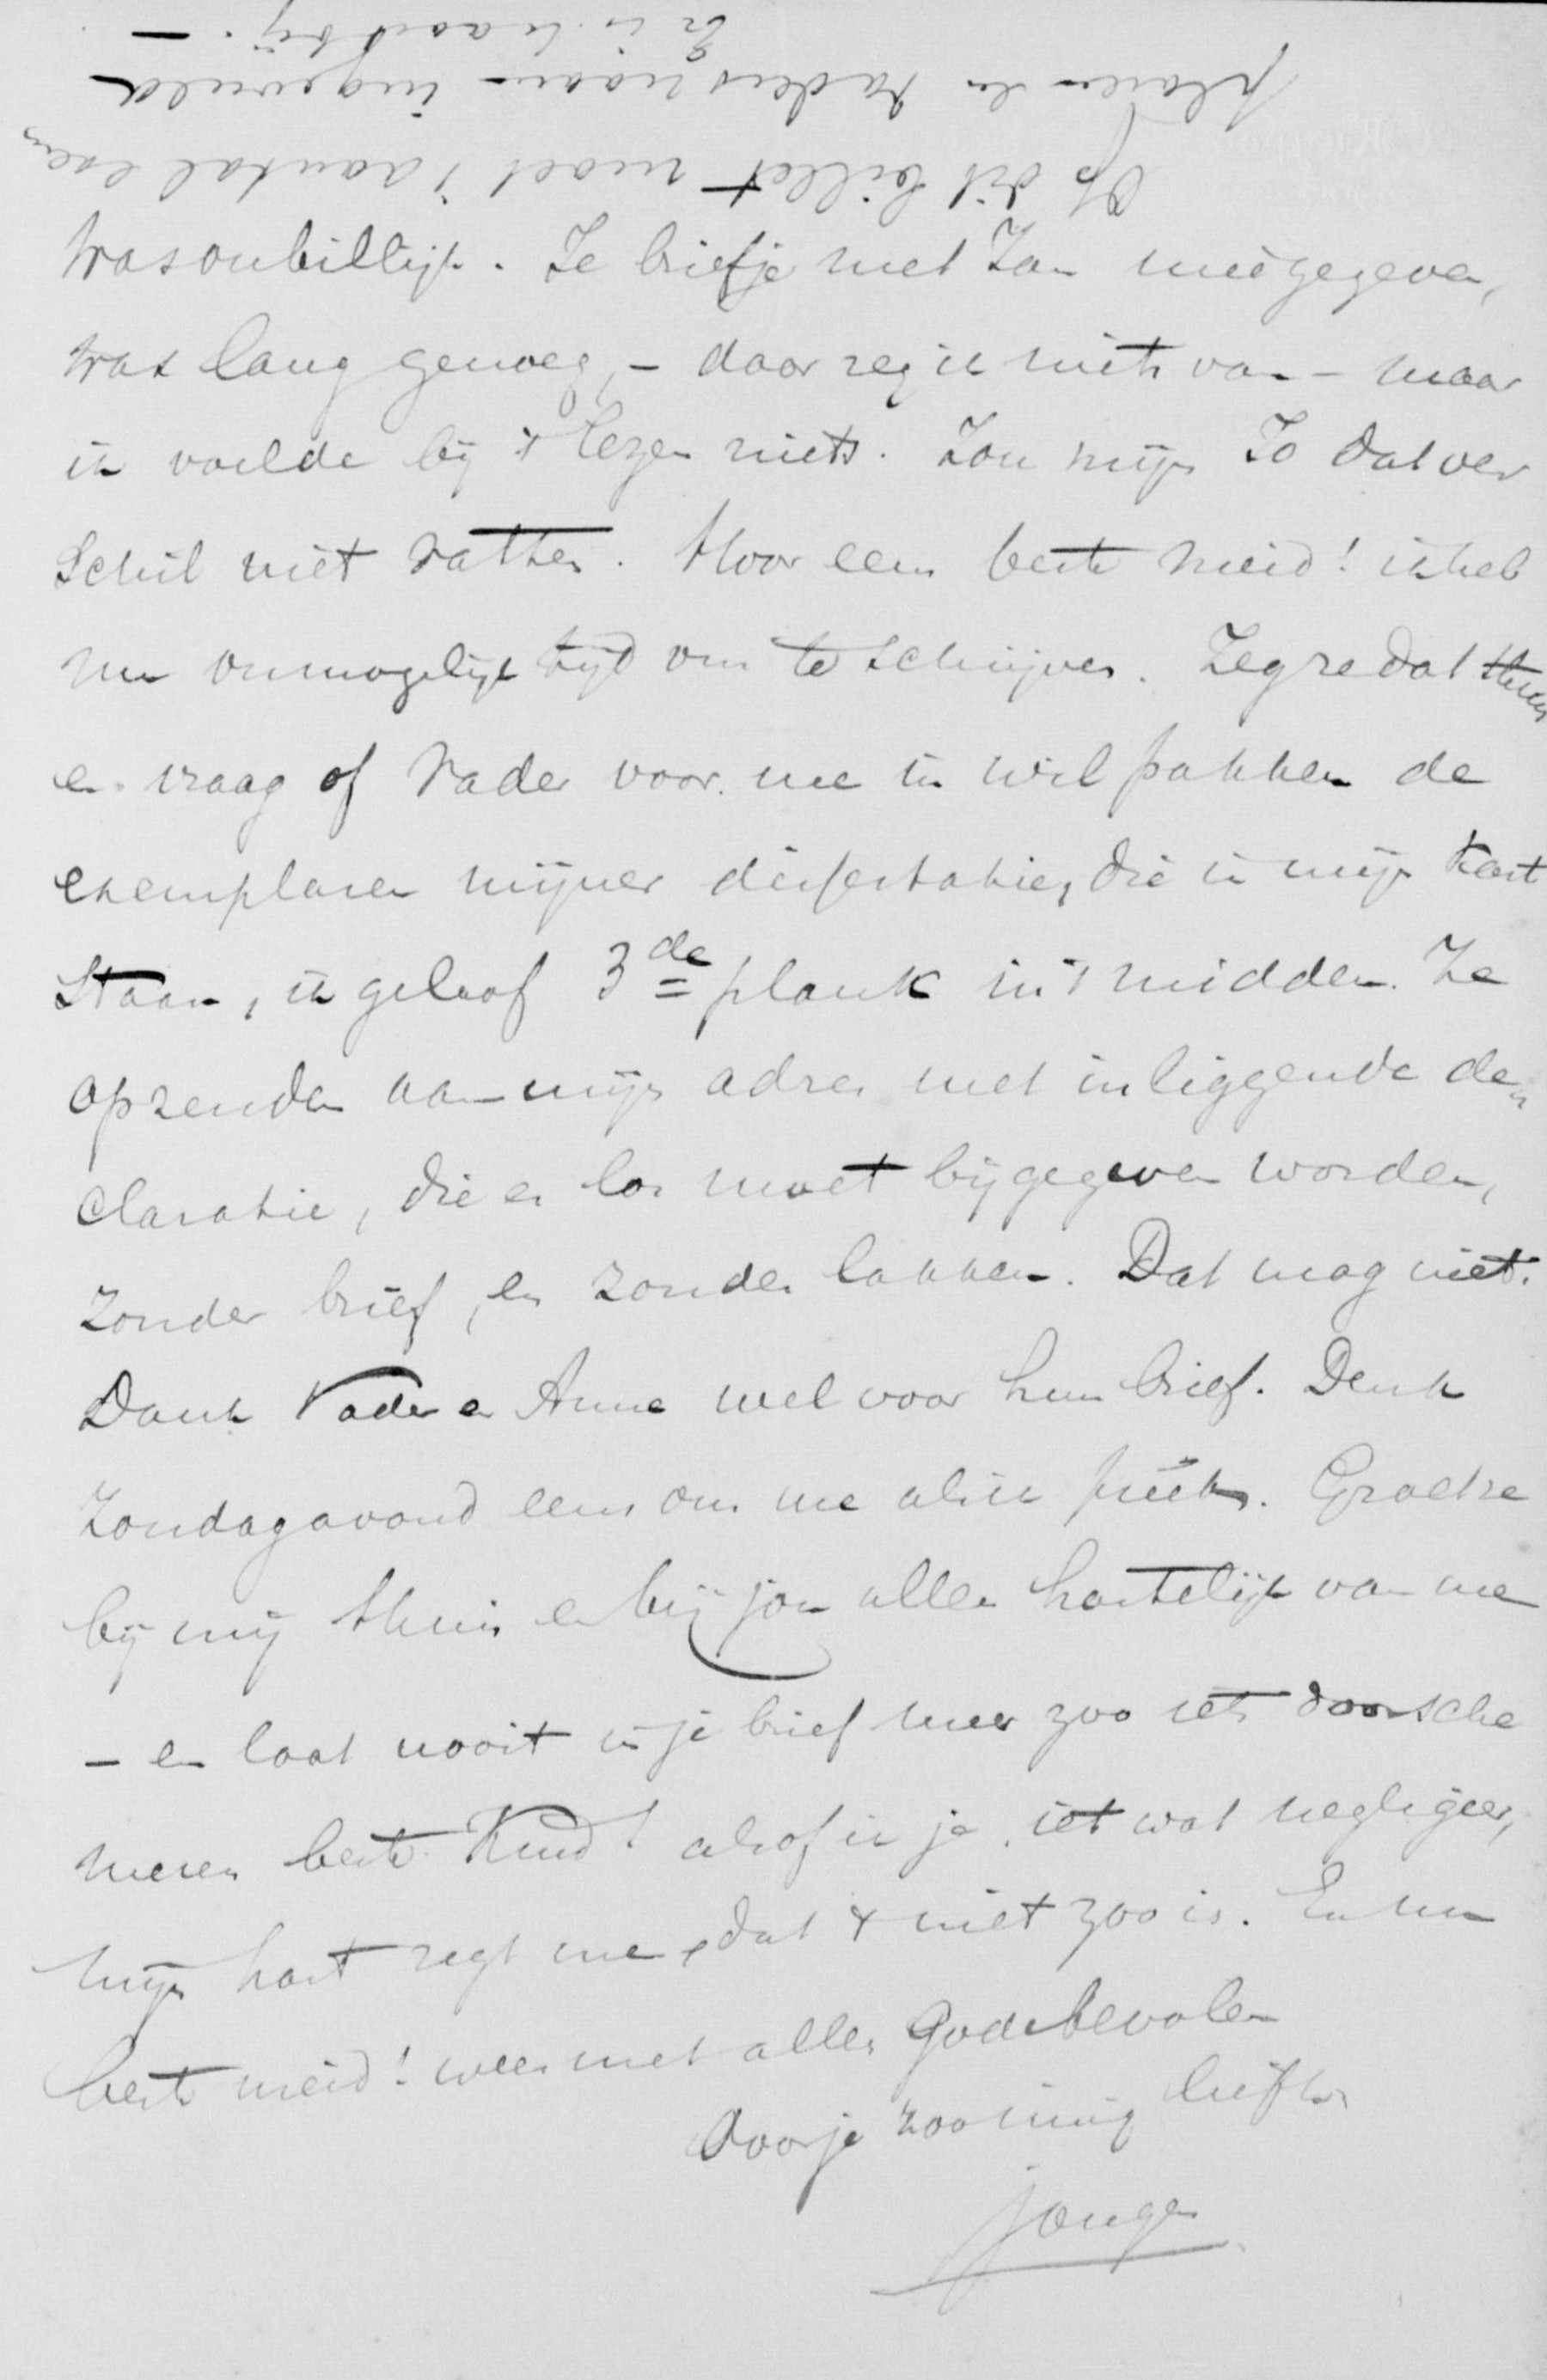 Op dit billet moet 't aantal exem
plaren en Vaders naam ingevuld
En in haast bij. —
was onbillijk. Je briefje met Jan meêgegeven,
was lang genoeg, — daar zeg ik niets van — maar
ik voelde bij 't lezen niets. Zou mijn Jo dat ver
schil niet vatten. Hoor eens beste meid! ik heb
nu onmogelijk tijd om te schrijven. Zeg ze dat thuis
en vraag of Vader voor me in wil pakken de
exemplaren mijner dissertatie, die in mijn kast
staan, ik geloof 3de plank in 't midden. Ze
opzenden aan mijn adres met inliggende de„
claratie, die er los moet bijgegeven worden,
zonder brief, en zonder lakken. Dat mag niet.
Dank Vader en Anna wel voor hun brief. Denk
Zondagavond eens om me als ik preêk. Groet ze
bij mij thuis en bij jou allen hartelijk van me
— en laat nooit in je brief meer zoo iets doorsche
meren beste Kind! alsof ik je iet wat negligeer,
mijn hart zegt me, dat 't niet zoo is. En nu
beste meid! wees met allen Gode bevolen
door je zoo innig liefh.
jongen